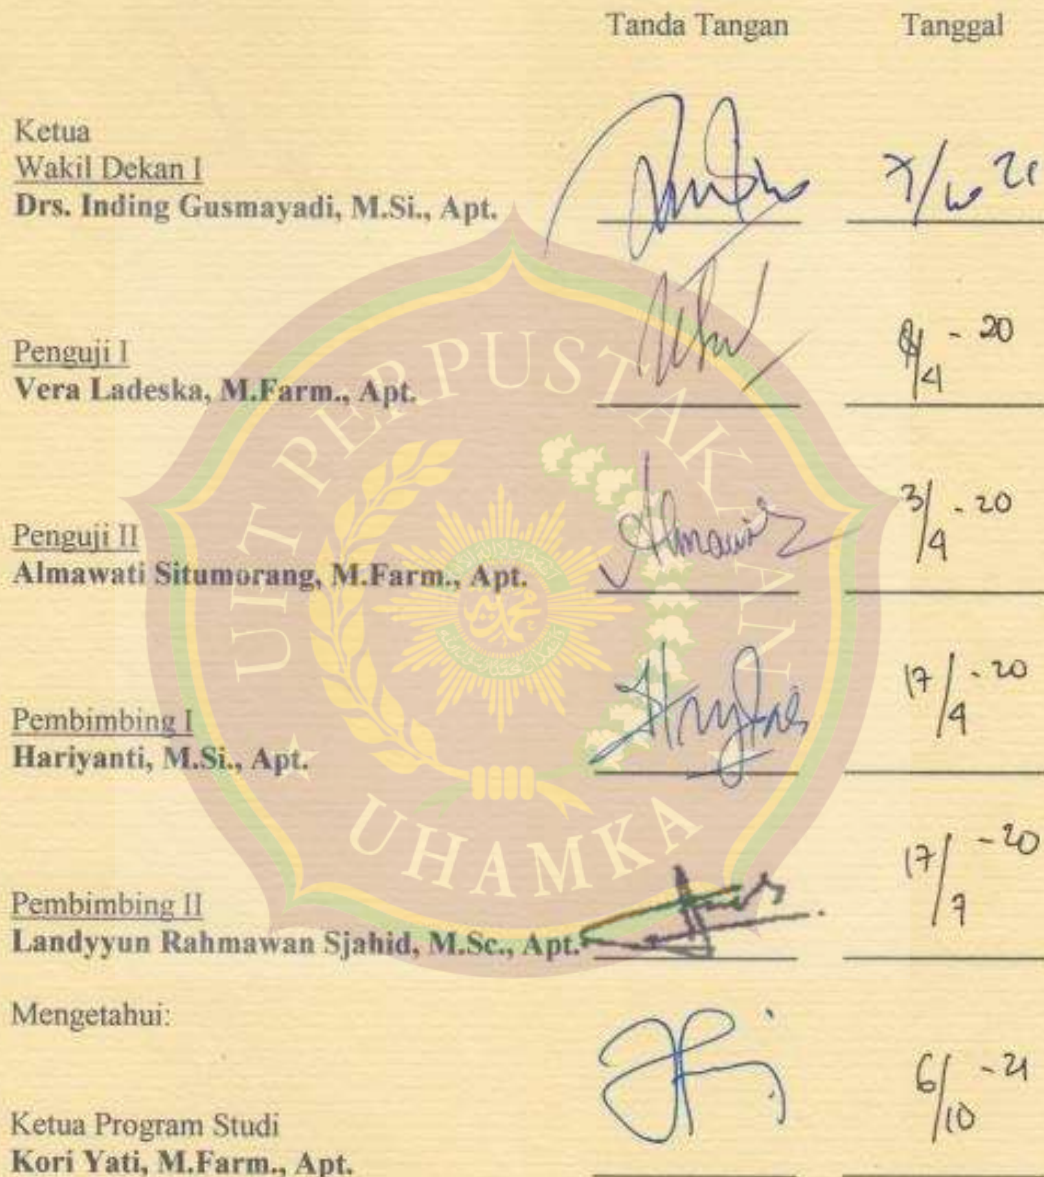 Tanda Tangan Tanggal
Ketua
Wakil Dekan I
Drs. Inding Gusmayadi, M.Si., Apt. 7/10 21
Penguji I
Vera Ladeska, M.Farm., Apt. /4 - 20
Penguji II
Almawati Situmorang, M.Farm., Apt. 3/4 - 20
Pembimbing I
Hariyanti, M.Si., Apt. 17/4 - 20
Pembimbing II
Landyyun Rahmawan Sjahid, M.Sc., Apt. 17/ - 20
Mengetahui:
Ketua Program Studi
Kori Yati, M.Farm., Apt. 6/10 - 21
UPT PERPUSTAKAAN
UHAMKA